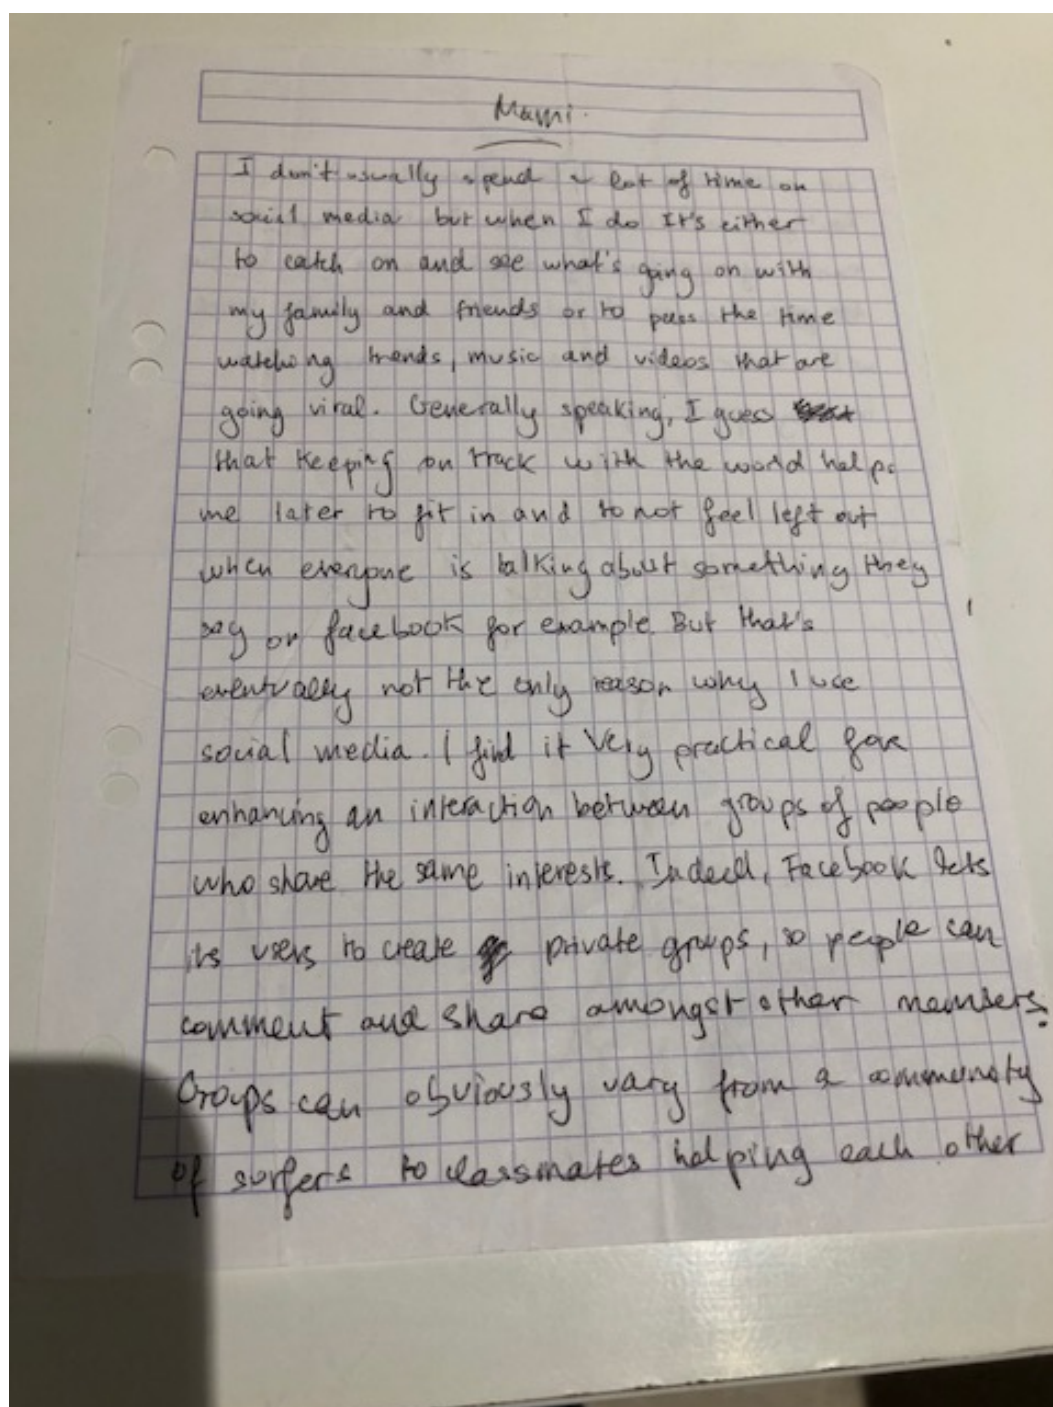 Mami.
I don't usually spend a lot of time on
social media but when I do It's either
to catch on and see what's going on with
my family and friends or to pass the time
watching trends, music and videos that are
going viral. Generally speaking, I guess
that keeping on track with the world helps
me later to fit in and to not feel left out
when everyone is talking about something they
say on facebook for example. But that's
eventually not the only reason why I use
social media. I find it very practical for
enhancing an interaction between groups of people
who share the same interests. Indeed, Facebook lets
its users to create private groups, so people can
comment and share amongst other members.
Groups can obviously vary from a community
of surfers to classmates helping each other